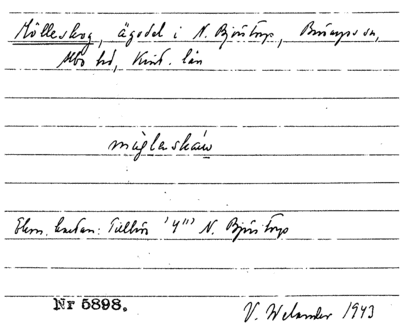 Mölleskog, ägodel i N. Björstorp, Brösarps sn,
Albo hd, Krist. län
möglaskåw
Ekon. kartan: Tillhör "4" N. Björstorp
Nr 5898.
V. Welander 1943